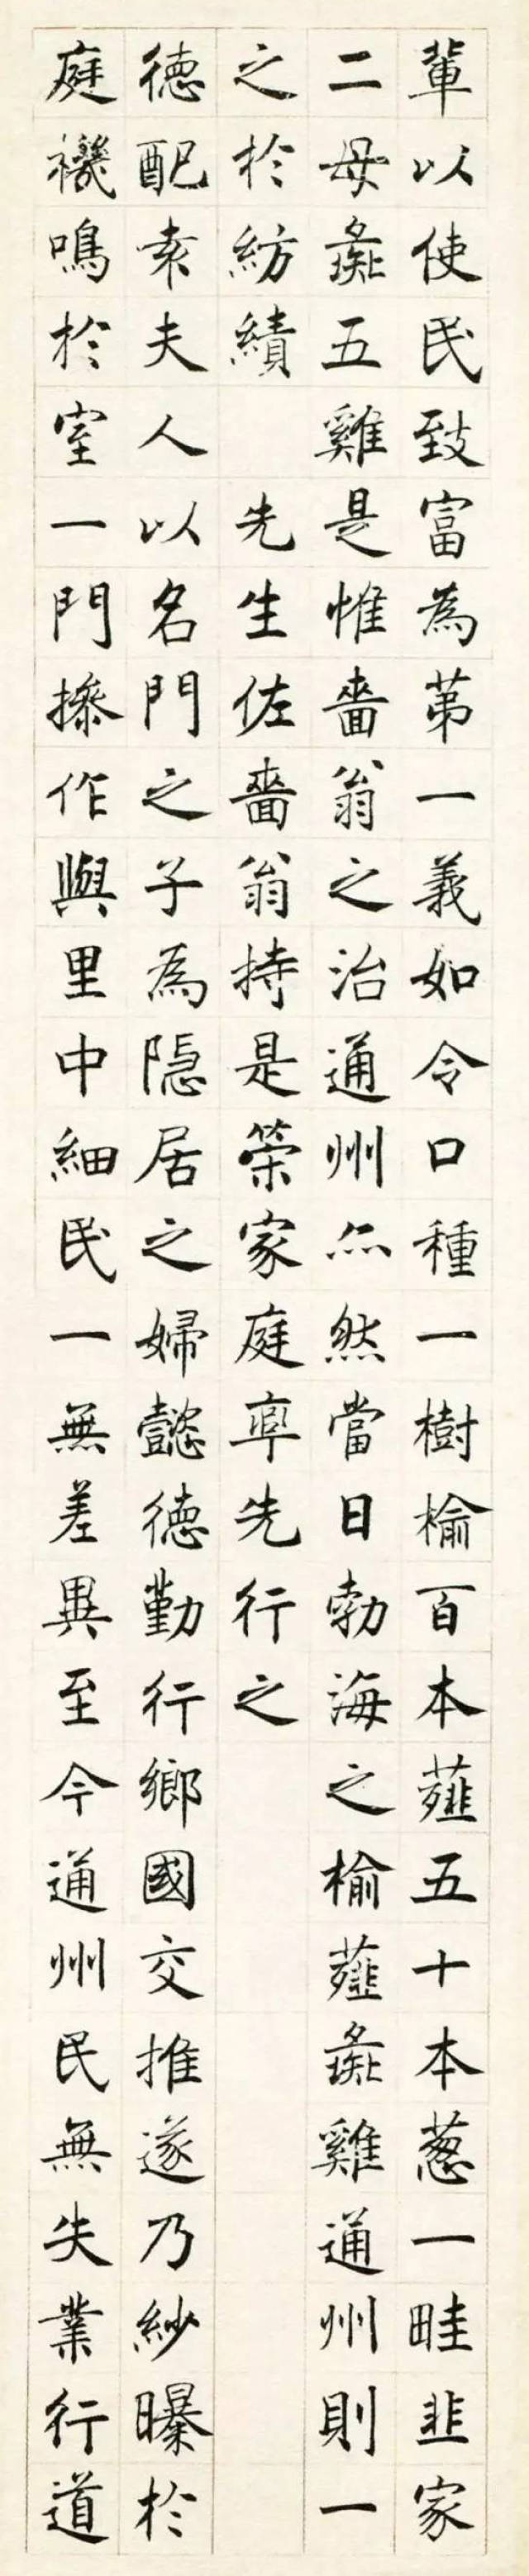 輩以使民致富為第一義如令口種一樹榆百本薤五十本蔥一畦韭家
二母彘五雞是惟嗇翁之治通州亦然當日勃海之榆薤彘雞通州則一
之於紡績　先生佐嗇翁持是榮家庭率先行之
德配袁夫人以名門之子為隱居之婦懿德勤行鄉國交推遂乃紗曝於
庭機鳴於室一門操作與里中細民一無差異至今通州民無失業行道